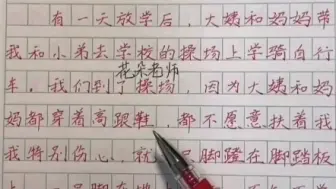 有一天放学后，大姨和妈妈带
我和小弟去学校的操场上学骑自行
花朵老师
车。我们到了操场，因为大姨和妈
妈都穿着高跟鞋，都不愿意扶着我
我特别伤心，就 脚蹬在脚踏板